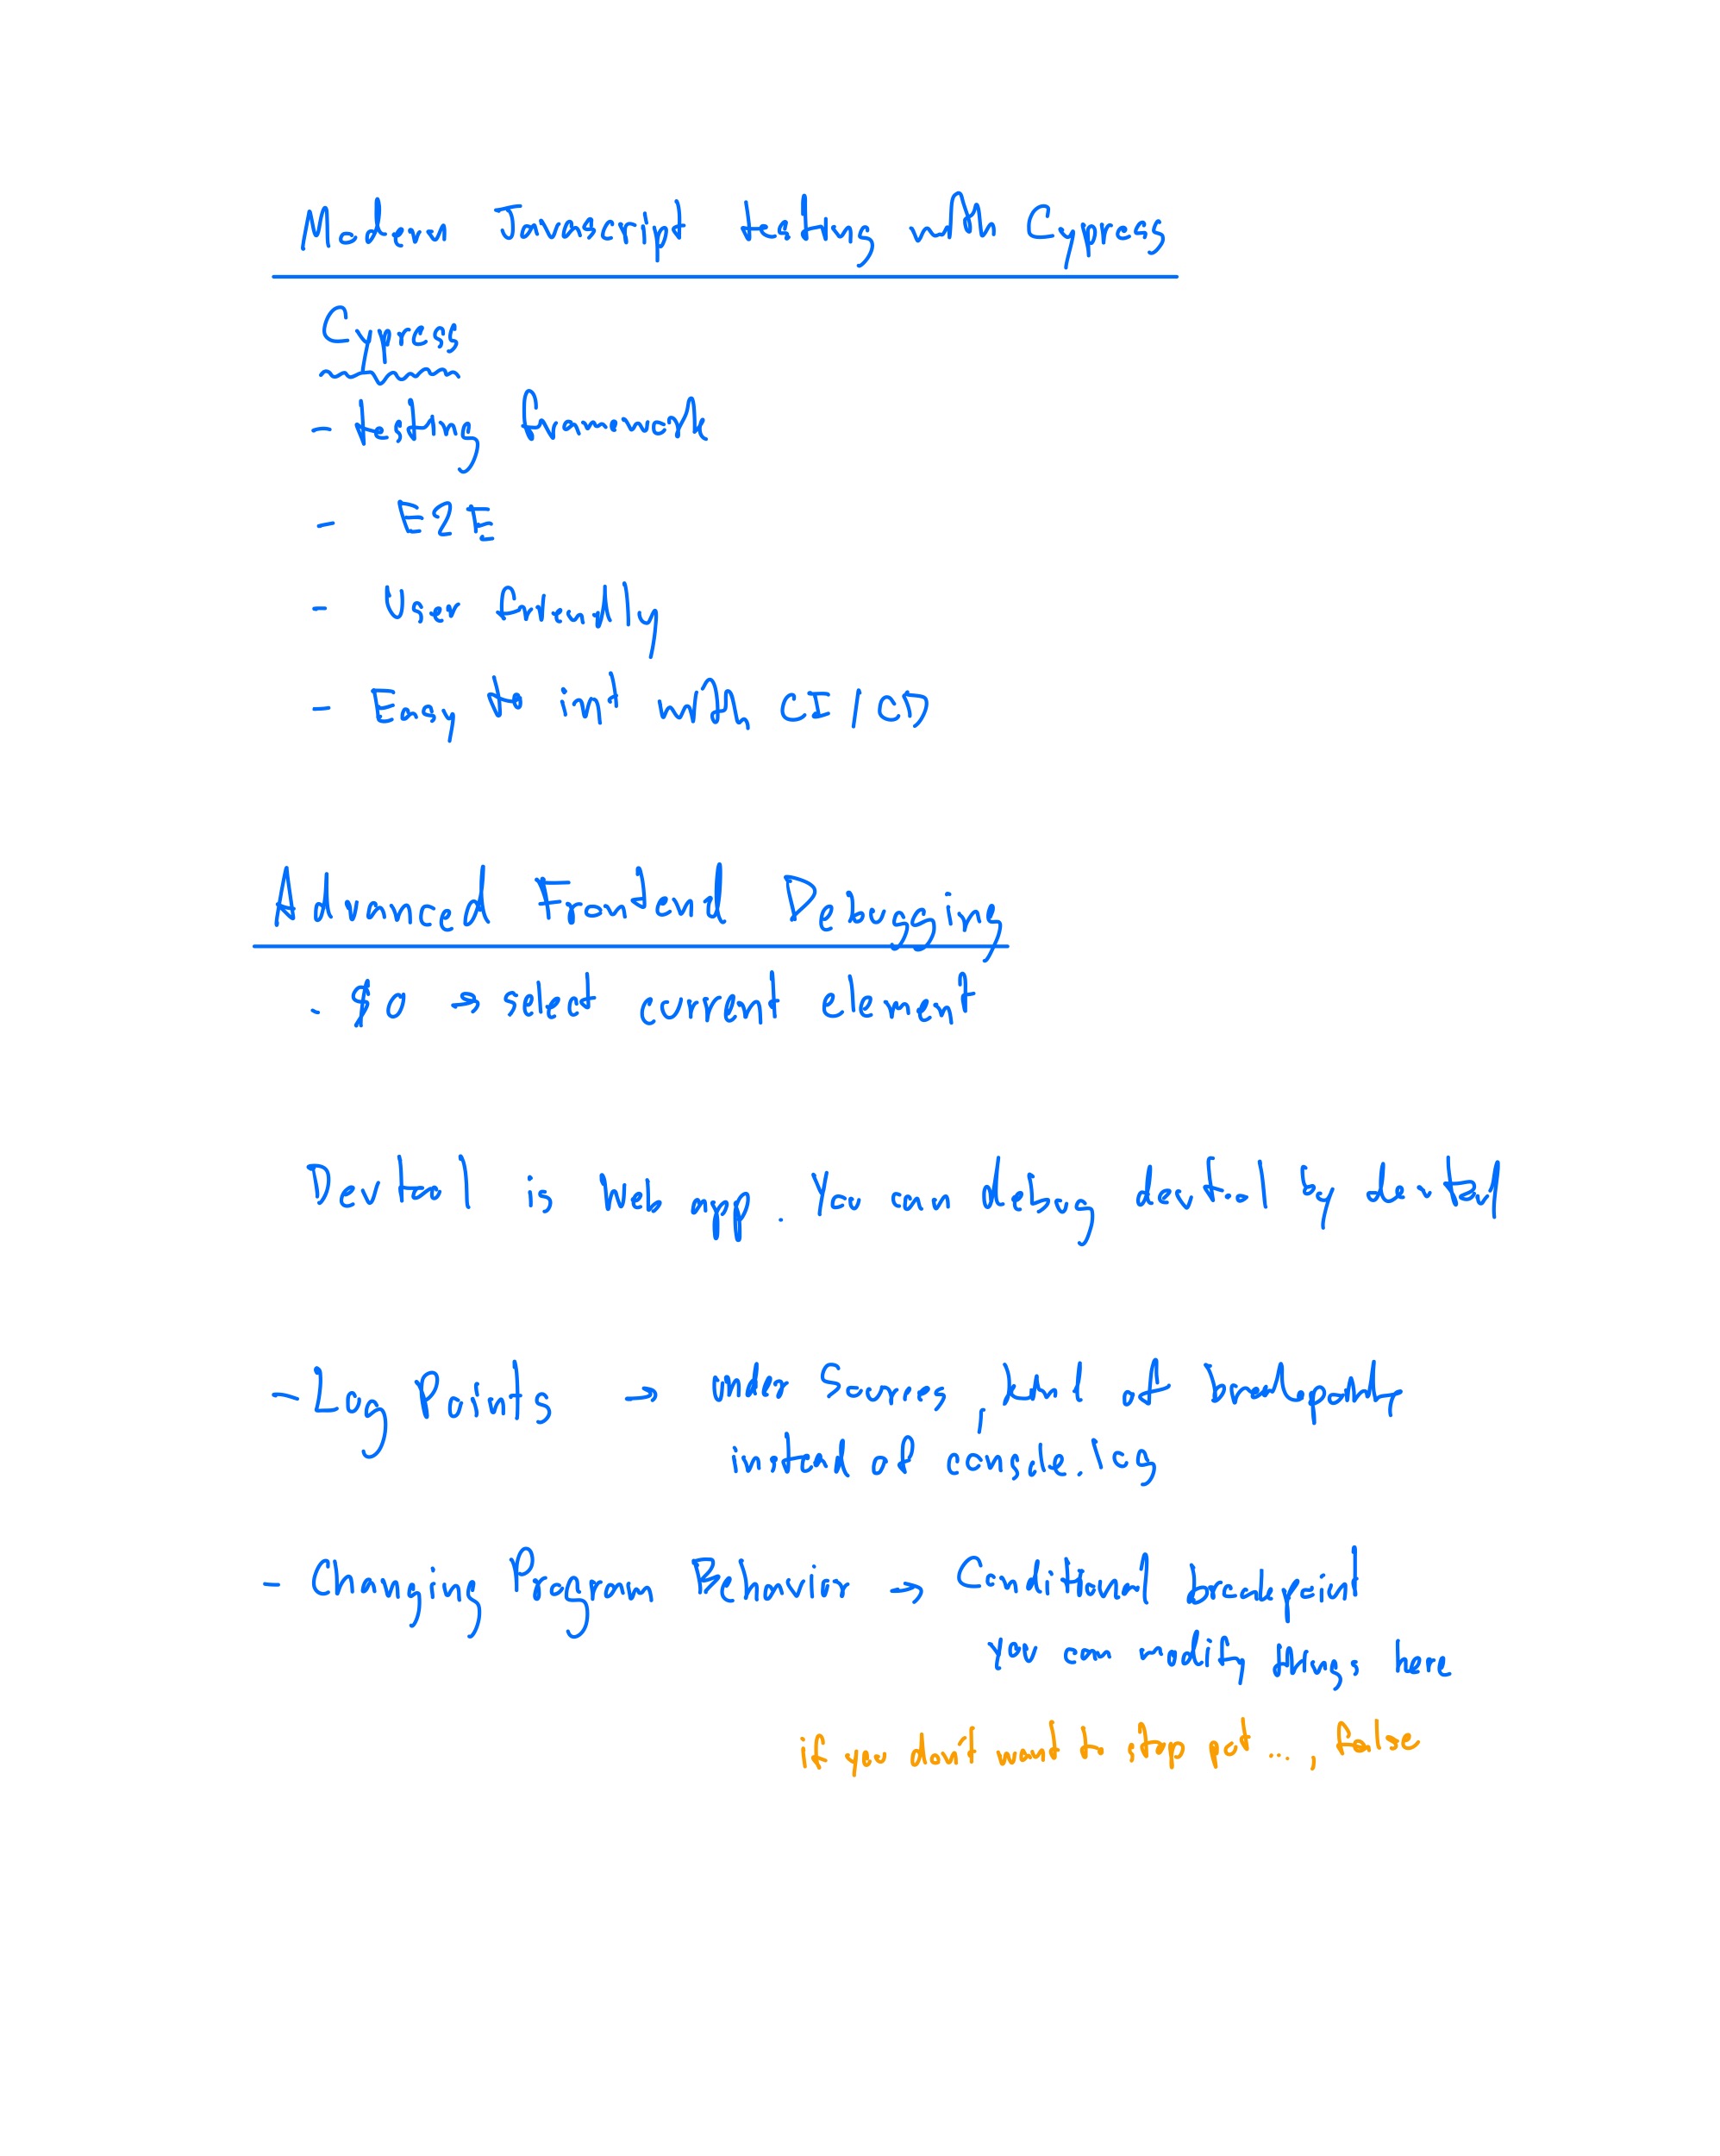 Modern Javascript testing with Cypress
Cypress
- testing framework
- E2E
- User friendly
- Easy to int with CI/CD
Advanced Frontend Debugging
. $0 → select current element
Dev tool is web app. You can debug devtool by dev tool
- Log Points → under Sources, kind of breakpoint,
instead of console.log
- Changing Program Behavior → Conditional breakpoint
you can modify things here
if you don't want to stop put ..., false